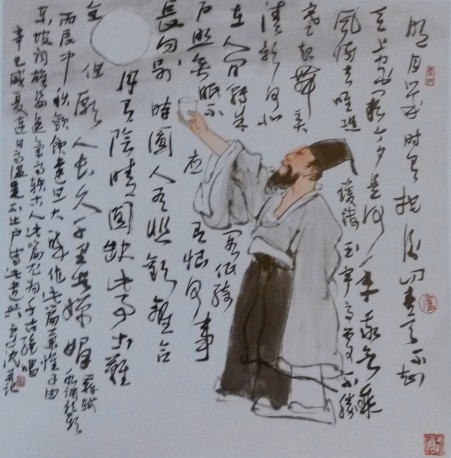 明月几时有把酒问青天不知
天上宫阙今夕是何年我欲乘
风归去唯恐琼楼玉宇高处不胜
寒起舞弄
清影何似
在人间转朱阁低绮
户照无眠不应有恨何事
长向别时圆人有悲欢离合
月有阴晴圆缺此事古难
全但愿人长久千里共婵娟
苏轼
水调歌头
丙辰中秋欢饮达旦大醉作此篇兼怀子由
东坡词雄
辛巳盛夏连日高温足不出户